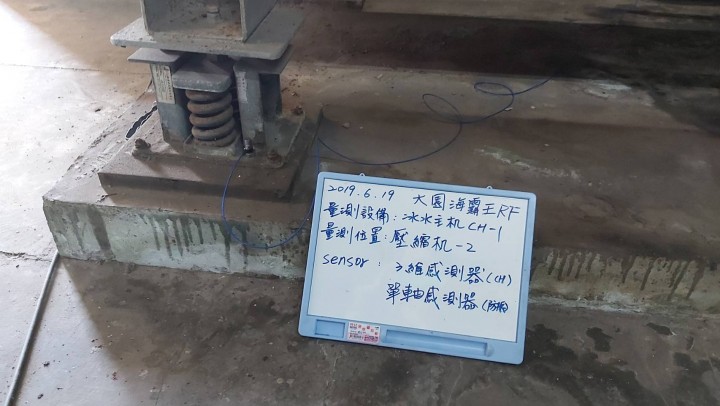 2019.6.19 大園海霸王RF
量測設備:冰水主机CH-1
量測位置:壓縮机-2
sensor: 3維感測器(CH)
單軸感測器(防振)